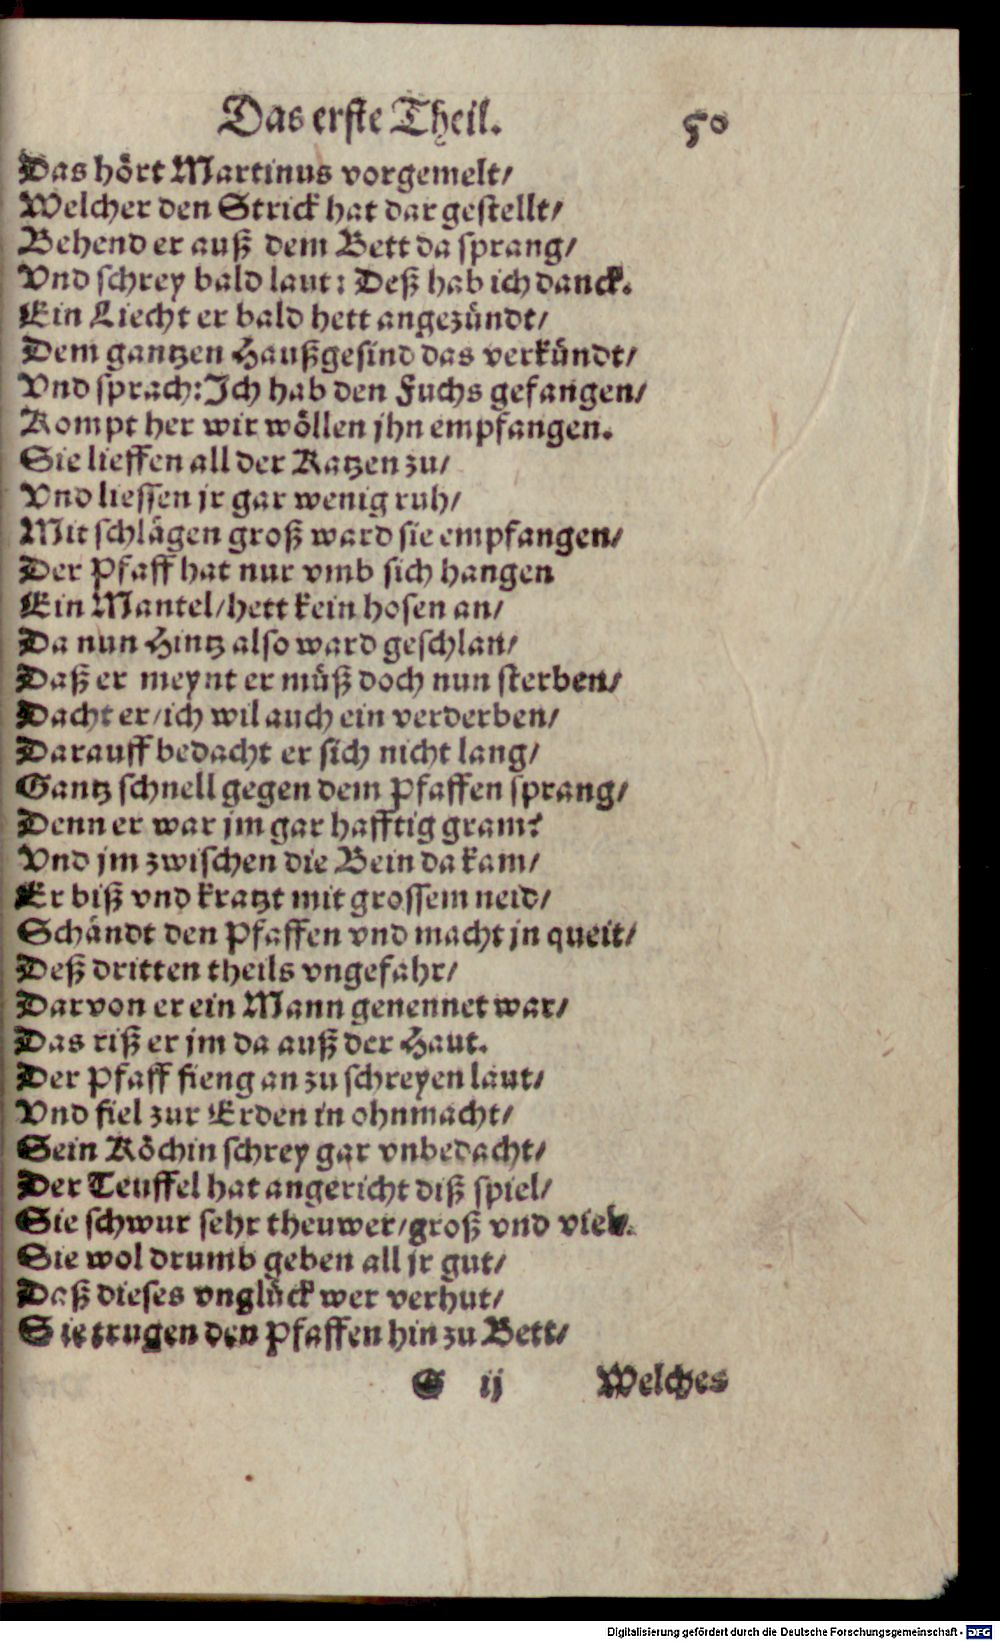 Das erste Theil. 50
Das hört Martinus vorgemelt/
Welcher den Strick hat dar gestellt/
Behend er auß dem Bett da sprang/
Vnd schrey bald laut: Deß hab ich danck.
Ein Liecht er bald hett angezündt/
Dem gantzen Haußgesind das verkündt/
Vnd sprach: Ich hab den Fuchs gefangen/
Kompt her wir wöllen jhn empfangen.
Sie lieffen all der Katzen zu/
Vnd liessen jr gar wenig ruh/
Mit schlägen groß ward sie empfangen/
Der Pfaff hat nur vmb sich hangen
Ein Mantel/hett kein hosen an/
Da nun Hintz also ward geschlan/
Daß er meynt er müß doch nun sterben/
Dacht er/ich wil auch ein verderben/
Darauff bedacht er sich nicht lang/
Gantz schnell gegen dem Pfaffen sprang/
Denn er war jm gar hafftig gram:
Vnd jm zwischen die Bein da kam/
Er biß vnd kratzt mit grossem neid/
Schändt den Pfaffen vnd macht jn queit/
Deß dritten theils vngefahr/
Darvon er ein Mann genennet war/
Das riß er jm da auß der Haut.
Der Pfaff fieng an zu schreyen laut/
Vnd fiel zur Erden in ohnmacht/
Sein Köchin schrey gar vnbedacht/
Der Teuffel hat angericht diß spiel/
Sie schwur sehr theuwer/groß vnd viel.
Sie wol drumb geben all jr gut/
Daß dieses vnglück wer verhut/
Sie trugen den Pfaffen hin zu Bett/
G ij Welches
Digitalisierung gefördert durch die Deutsche Forschungsgemeinschaft - DFG